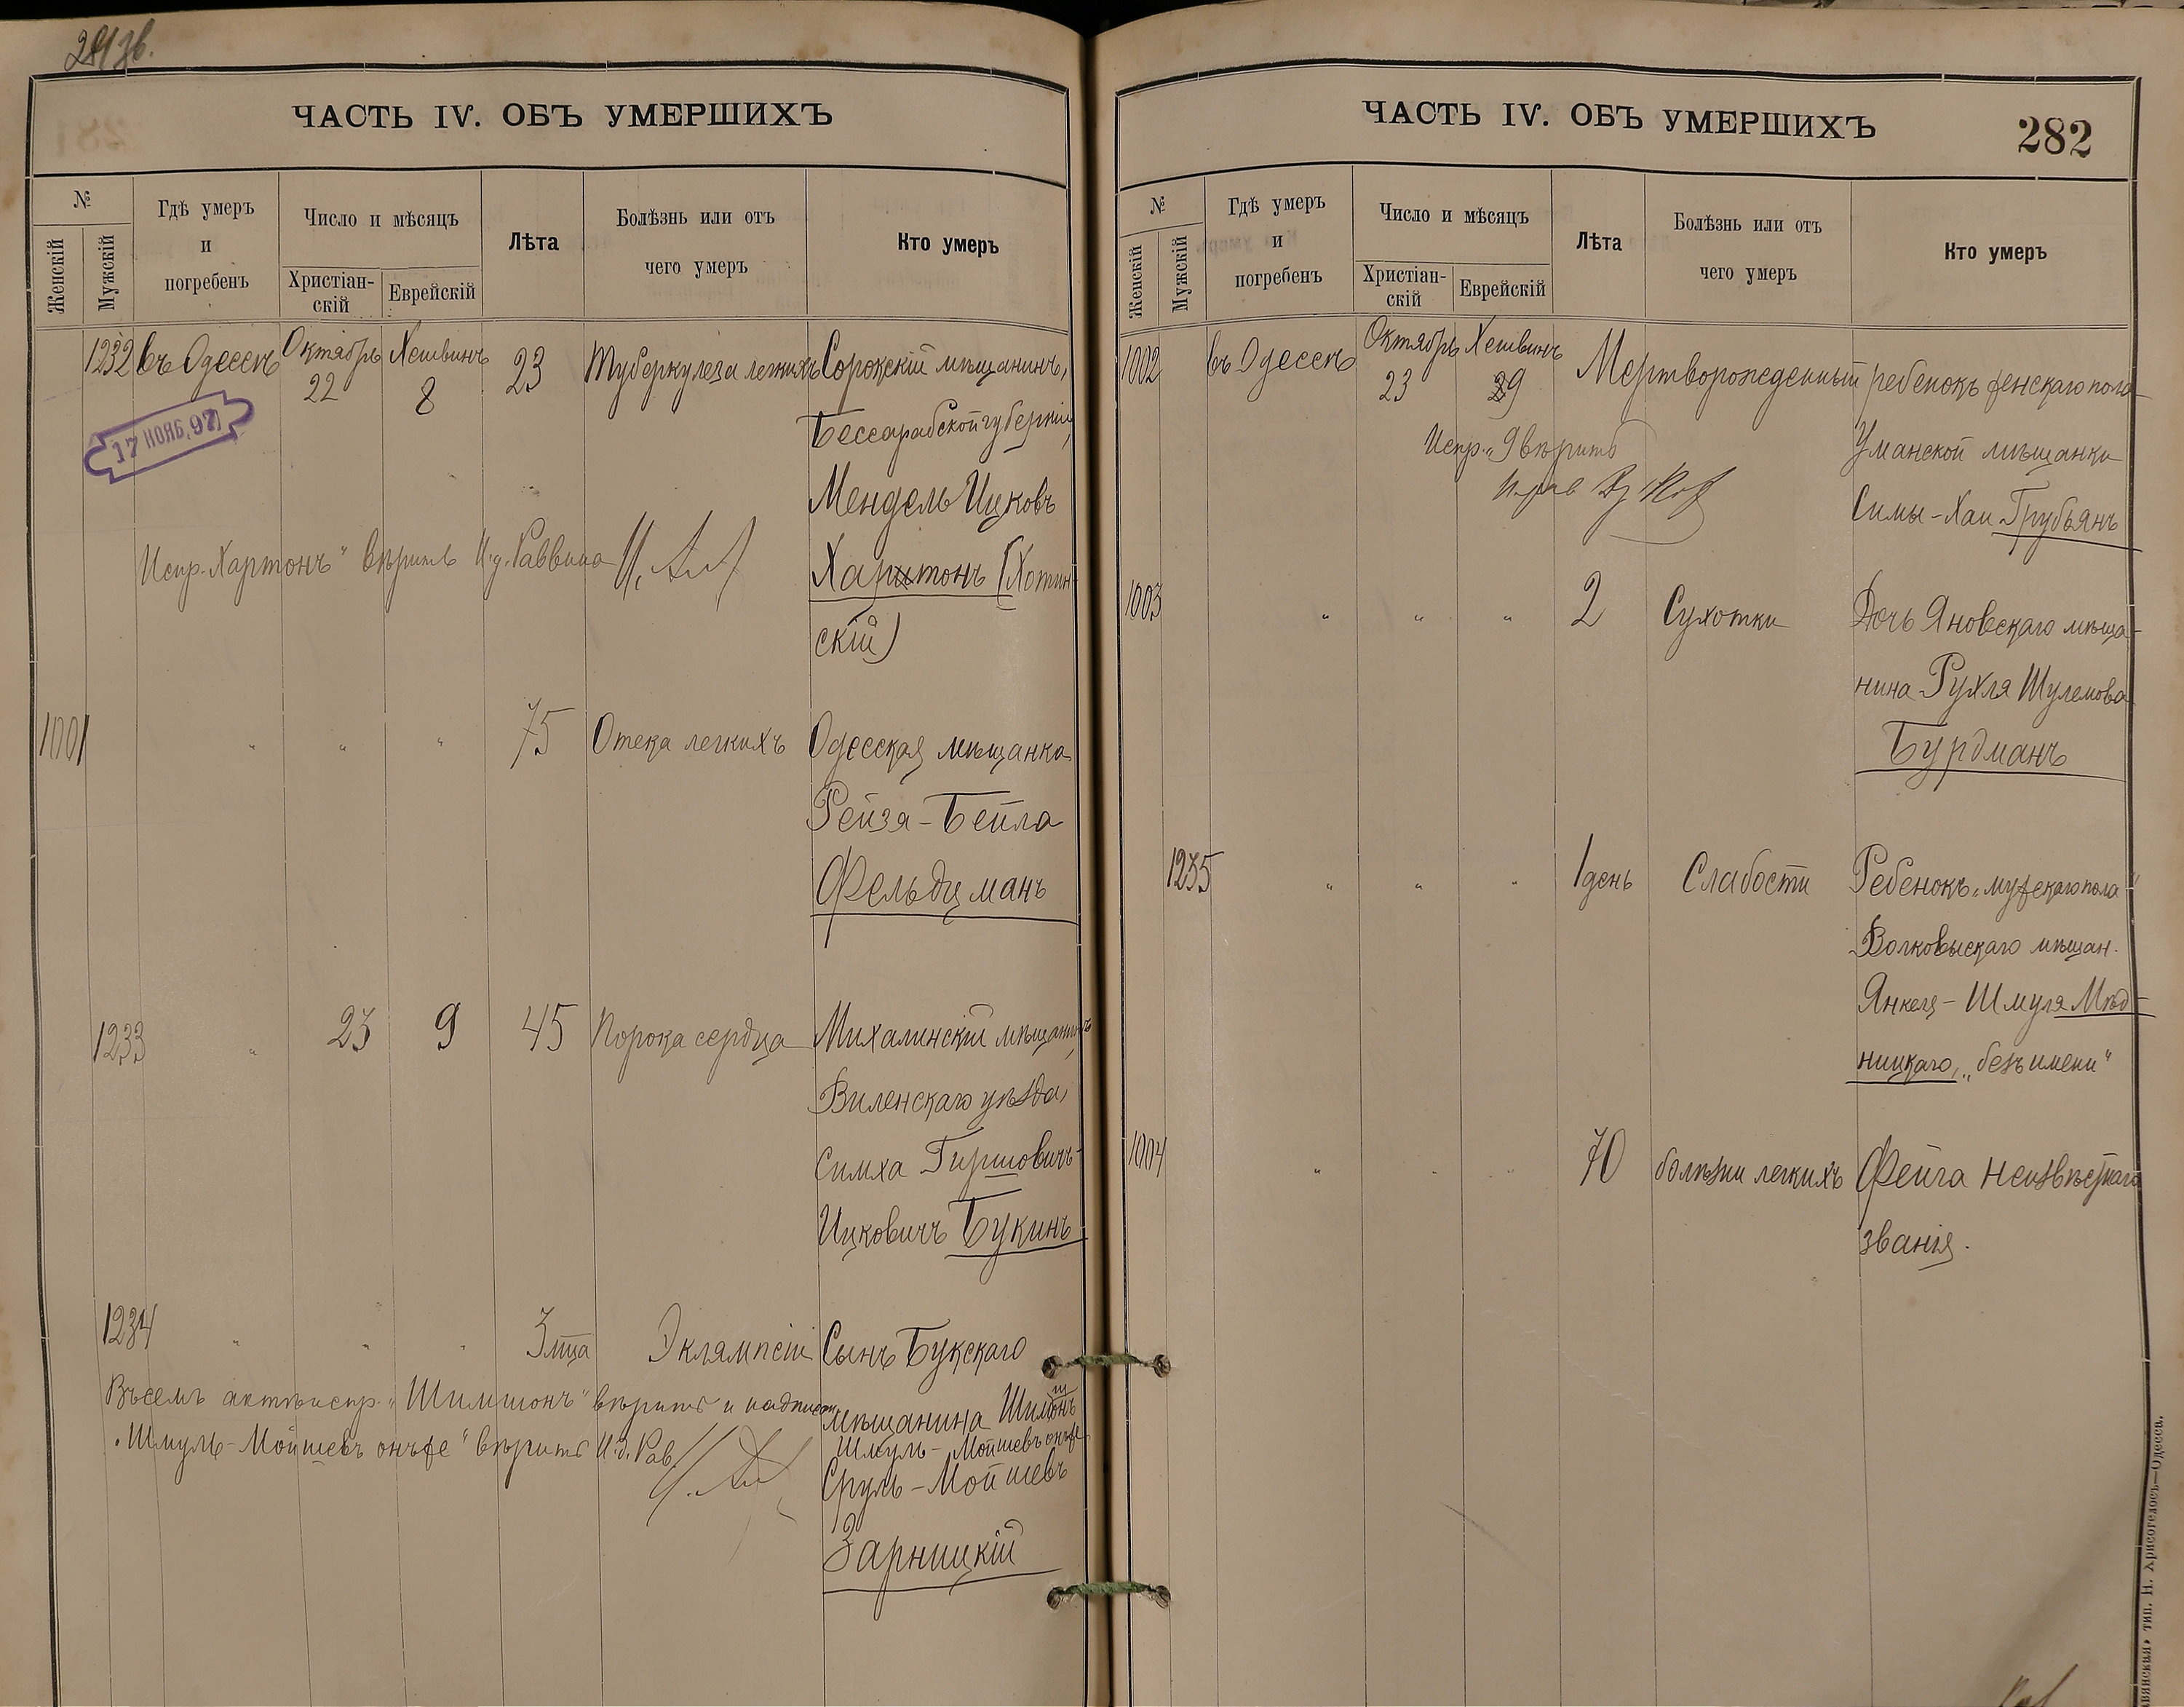 281 зв.
ЧАСТЬ IV. ОБЪ УМЕРШИХЪ
№
Женскій
Мужскій
Гдѣ умеръ и погребенъ
Число и мѣсяцъ
Христіан-
скій
Еврейскій
Лѣта
Болѣзнь или отъ
чего умеръ
Кто умеръ
1232 въ Одессѣ Октябрь Хешвинъ 23 Туберкулеза легкихъ Сорокскій мѣщанинъ,
22 8 Бессарабской губерніи,
17 НОЯБ. 97
Мендель Ицковъ
Испр. Хартонъ" вѣрить И.д. Раввина Харитонъ (Хотин-
скій)
1001 " " " 75 Отека легкихъ Одесская мѣщанка
Рейзя-Бейла
Фельдманъ
1233 " 23 9 45 Порока сердца Михалинскій мѣщанинъ,
Виленскаго уѣзда,
Симха Гиршовичъ-
Ицковичъ Букинъ
1234 " " " 3 м-ца Эклямпсіи Сынъ Букскаго
Въ семъ актѣ испр. "Шимшонъ" вѣрить и надписан. мѣщанина Шимонъ
ш
"Шмуль-Мойшевъ онъ же" вѣрить И.д. Рав. Шмуль-Мойшевъ онъ же
Сруль-Мойшевъ
Зарницкій
ЧАСТЬ IV. ОБЪ УМЕРШИХЪ
282
№
Женскій
Мужскій
Гдѣ умеръ
и
погребенъ
Число и мѣсяцъ
Христіан-
скій
Еврейскій
Лѣта
Болѣзнь или отъ
чего умеръ
Кто умеръ
1002 въ Одессѣ Октябрь Хешвинъ Мертворожденный ребенокъ женскаго пола
23 9
Испр. "9 вѣрить Уманской мѣщанки
Симы-Хаи Грубьянъ
1003 " " " 2 Сухотки Дочь Яновскаго мѣща-
нина Рухля Шулемова
Бурдманъ
1235 " " " 1 день Слабости Ребенокъ "мужскаго пола"
Волковыскаго мѣщан.
Янкеля-Шмуля Мѣд-
ницкаго, "безъ имени"
1004 " " " 70 болѣзни легкихъ Фейга неизвѣстнаго
званія.
тип. Н. Хрисогелосъ—Одесса.